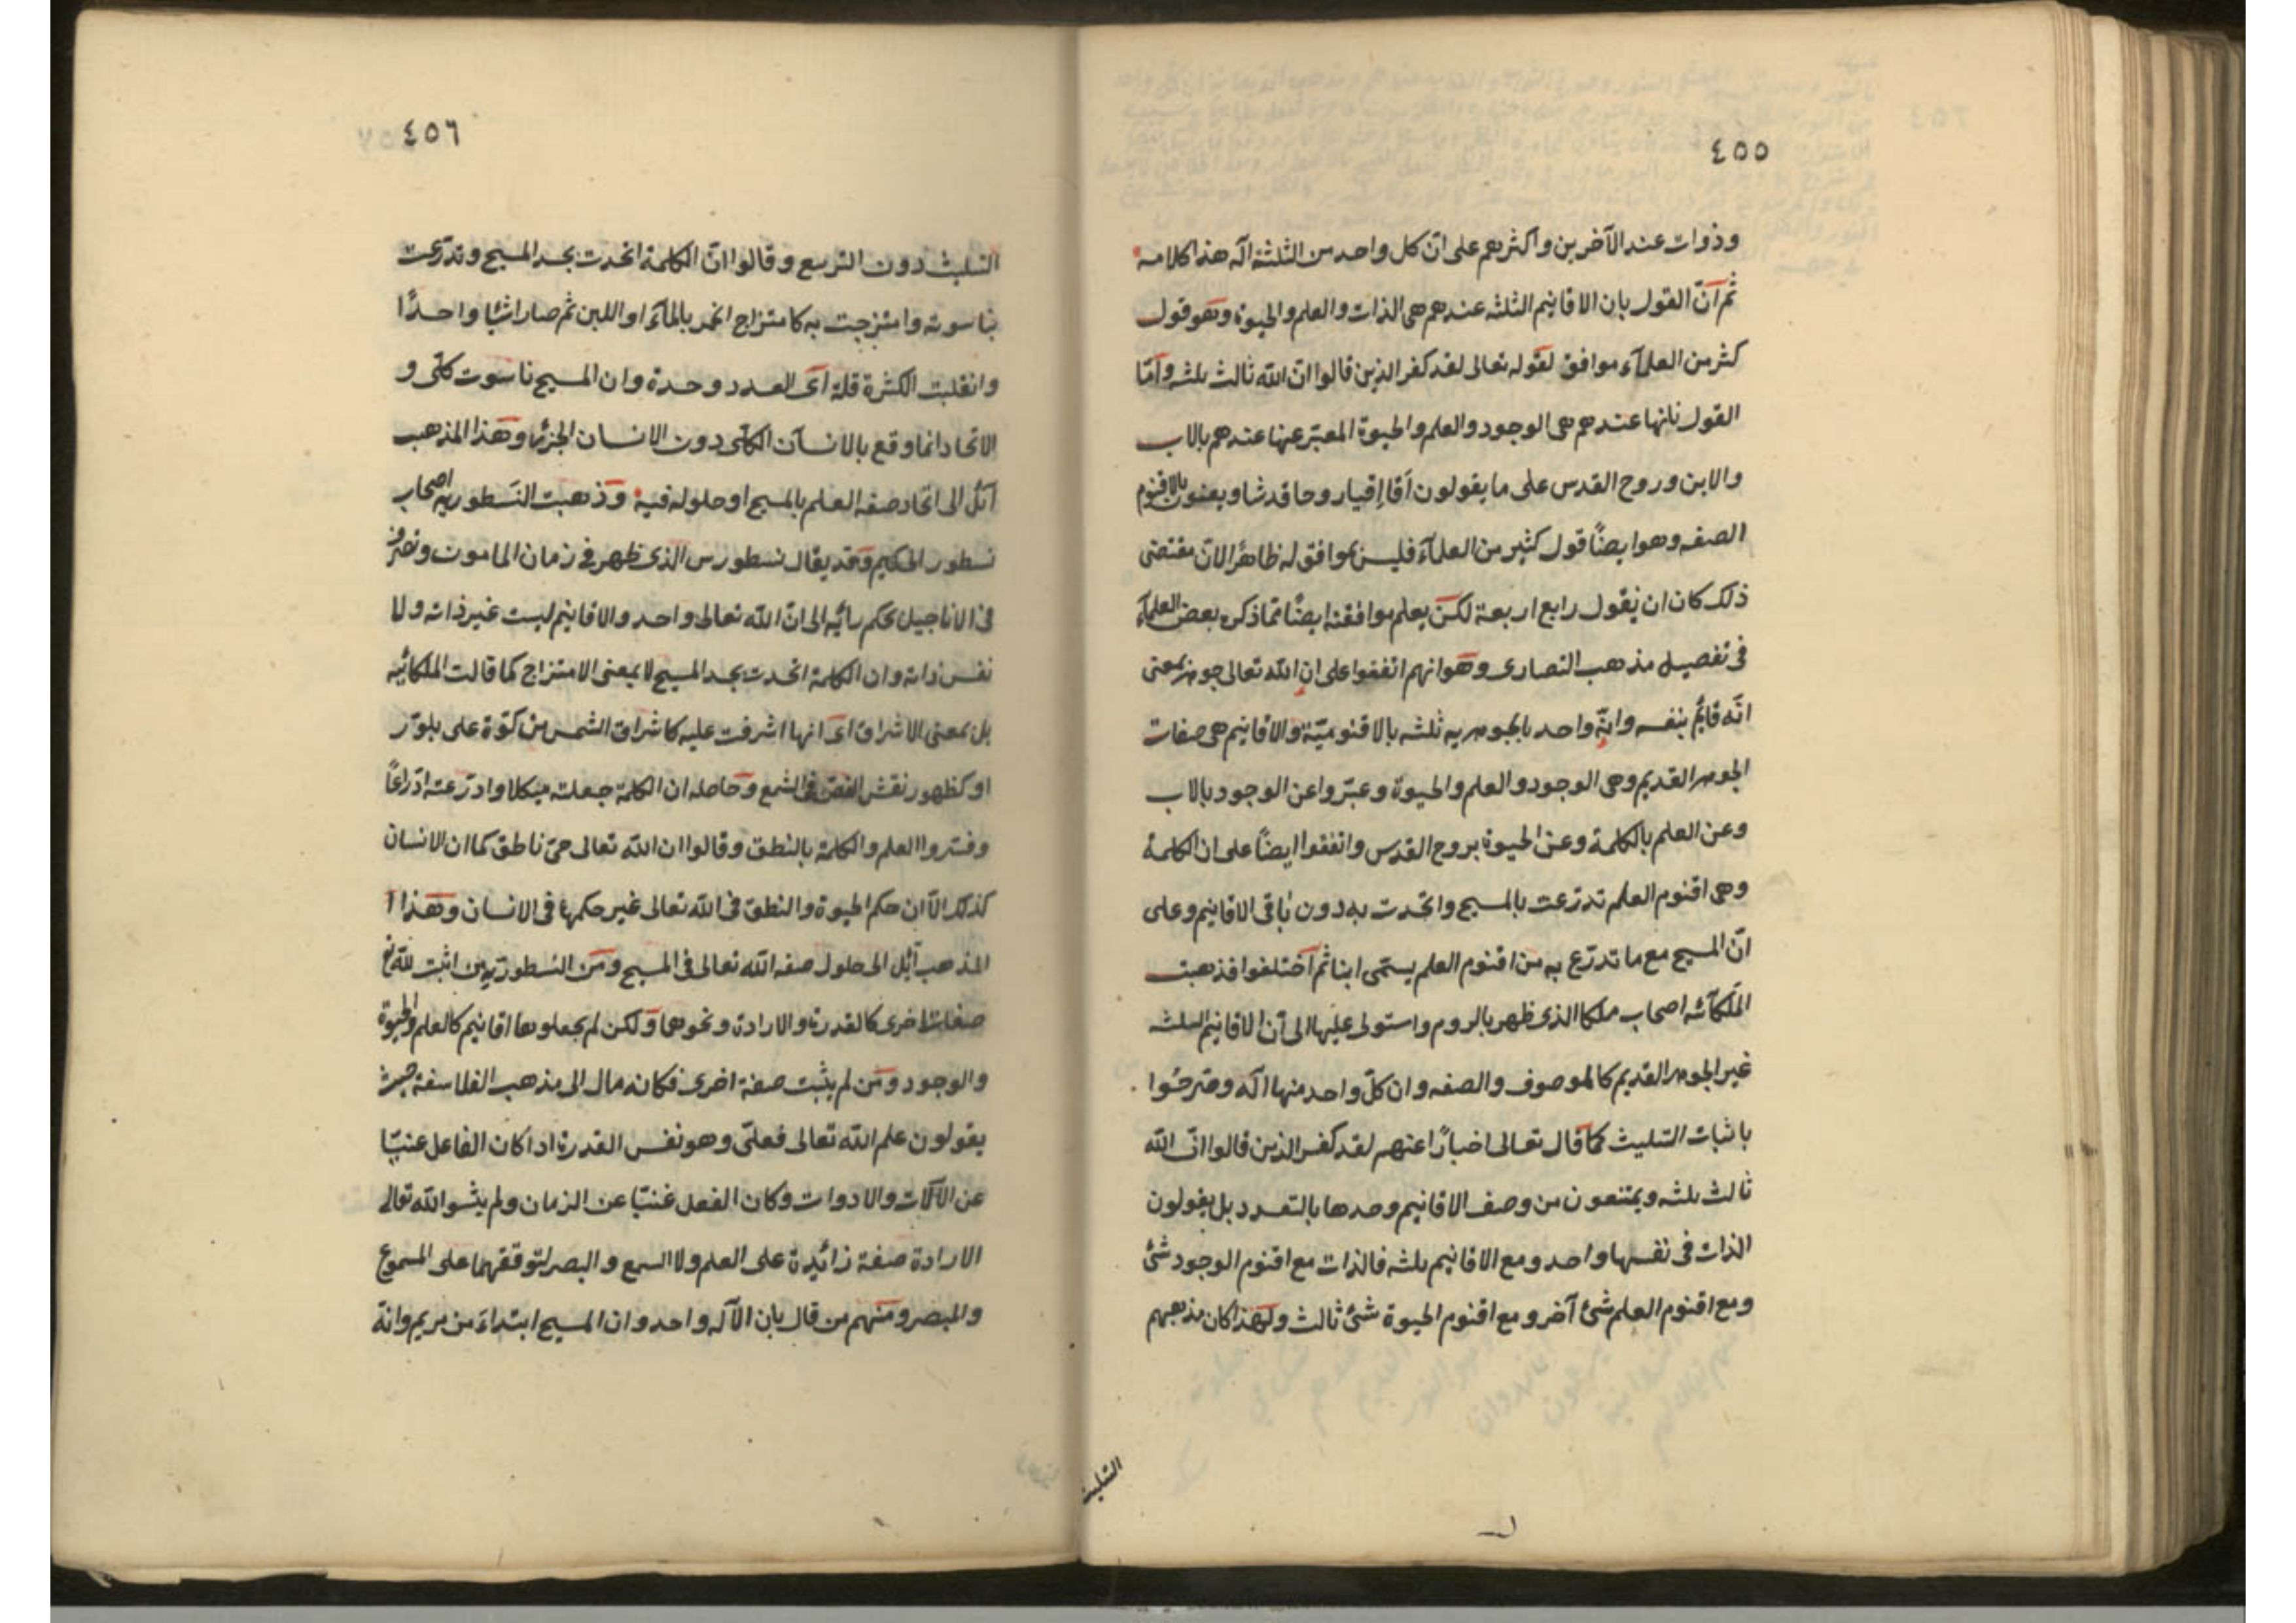 ٤٥٥
وذوات عند الآخرين واكثرهم على انّ كل واحد من الثلثة آله هذا كلامه
ثم انّ القول بان الاقانيم الثلثه عندهم هى الذات والعلم والحيوة وهو قول
كثر من العلمآء موافق لقوله تعالى لقد كفر الذين قالوا انّ الله ثالث ثلثه وامّا
القول بانها عندهم هى الوجود والعلم والحيوة المعبّر عنها عندهم بالاب
والابن وروح القدس على ما يقولون آقا إقيار وحا قدشا ويعنون بالاقنوم
الصفه وهو ايضاً قول كثير من العلمآء فليس بموافق له ظاهرًا لانّ مقتضى
ذلك كان ان يقول رابع اربعة لكن يعلم موافقته ايضًا مما ذكره بعض العلمآء
فى تفصيل مذهب النصارى وهو انهم اتفقوا على ان الله تعالى جوهر بمعنى
انّه قائم بنفسه وانّه واحد بالجوهريه ثلثه بالاقنوميّة والاقانيم هى صفات
الجوهر القديم وهى الوجود والعلم والحيوة وعبّروا عن الوجود بالاب
وعن العلم بالكلمة وعن الحيوة بروح القدس واتفقوا ايضاً على ان الكلمة
وهى اقنوم العلم تدرّعت بالمسيح واتحدت به دون باقى الاقانيم وعلى
انّ المسيح مع ما تدرّع به من اقنوم العلم يسمّى ابنا ثم اختلفوا فذهبت
الملكائيه اصحاب ملكا الذى ظهر بالروم واستولى عليها الى ان الاقانيم الثلثه
غير الجوهر القديم كالموصوف والصفه وان كلّ واحد منها اله وصرحوا
باثبات التثليث كما قال تعالى اخبارًا عنهم لقد كفر الذين قالوا انّ الله
ثالث ثلثه ويمتنعون من وصف الاقانيم وحدها بالتعدد بل يقولون
الذات فى نفسها واحد ومع الاقانيم ثلثه فالذات مع اقنوم الوجود شئ
ومع اقنوم العلم شئ آخر ومع اقنوم الحيوة شئ ثالث ولهذا كان مذهبهم
التثليث
٤٥٦
التثليث دون التربيع وقالوا انّ الكلمة اتحدت بجسد المسيح وتدرّعت
بناسوته وامتزجت به كامتزاج الخمر بالمآء او اللبن ثم صارا شيئا واحدًا
وانقلبت الكثرة قلة اى العدد وحدة وان المسيح ناسوت كلّى و
الاتحاد انما وقع بالانسان الكلّى دون الانسان الجزئى وهذا المذهب
آئل الى اتحاد صفه العلم بالمسيح او حلوله فيه وذهبت النسطوريه اصحاب
نسطور الحكيم وقد يقال نسطورس الذى ظهر فى زمان المامون وتصرف
فى الاناجيل بحكم رأيه الى انّ الله تعالى واحد والاقانيم ليست غير ذاته ولا
نفس ذاته وان الكلمة اتحدت بجسد المسيح لا بمعنى الامتزاج كما قالت الملكائيه
بل بمعنى الاشراق اى انها اشرقت عليه كاشراق الشمس من كوّة على بلوّر
او كظهور نقش الفصّ فى الشمع وحاصله ان الكلمة جعلته هيكلا وادرّعته ادّراعًا
وفسّروا العلم والكلمة بالنطق وقالوا ان الله تعالى حىّ ناطق كما ان الانسان
كذلك الاّ ان حكم الحيوة والنطق فى الله تعالى غير حكمها فى الانسان وهذا ا
المذهب آئل الى حلول صفه الله تعالى فى المسيح ومن النسطوريه من اثبت لله تع
صفات اخرى كالقدرة والارادة ونحوها ولكن لم يجعلوها اقانيم كالعلم والحيوة
والوجود ومن لم يثبت صفة اخرى فكانه مال الى مذهب الفلاسفة حيث
يقولون علم الله تعالى فعلىّ وهو نفس القدرة اذا كان الفاعل غنيّا
عن الآلات والادوات وكان الفعل غنيّا عن الزمان ولم يثبتوا لله تعالى
الارادة صفة زائدة على العلم ولا السمع والبصر لتوقفهما على المسموع
والمبصر ومنهم من قال بان الآله واحد وان المسيح ابتداء من مريم وانه